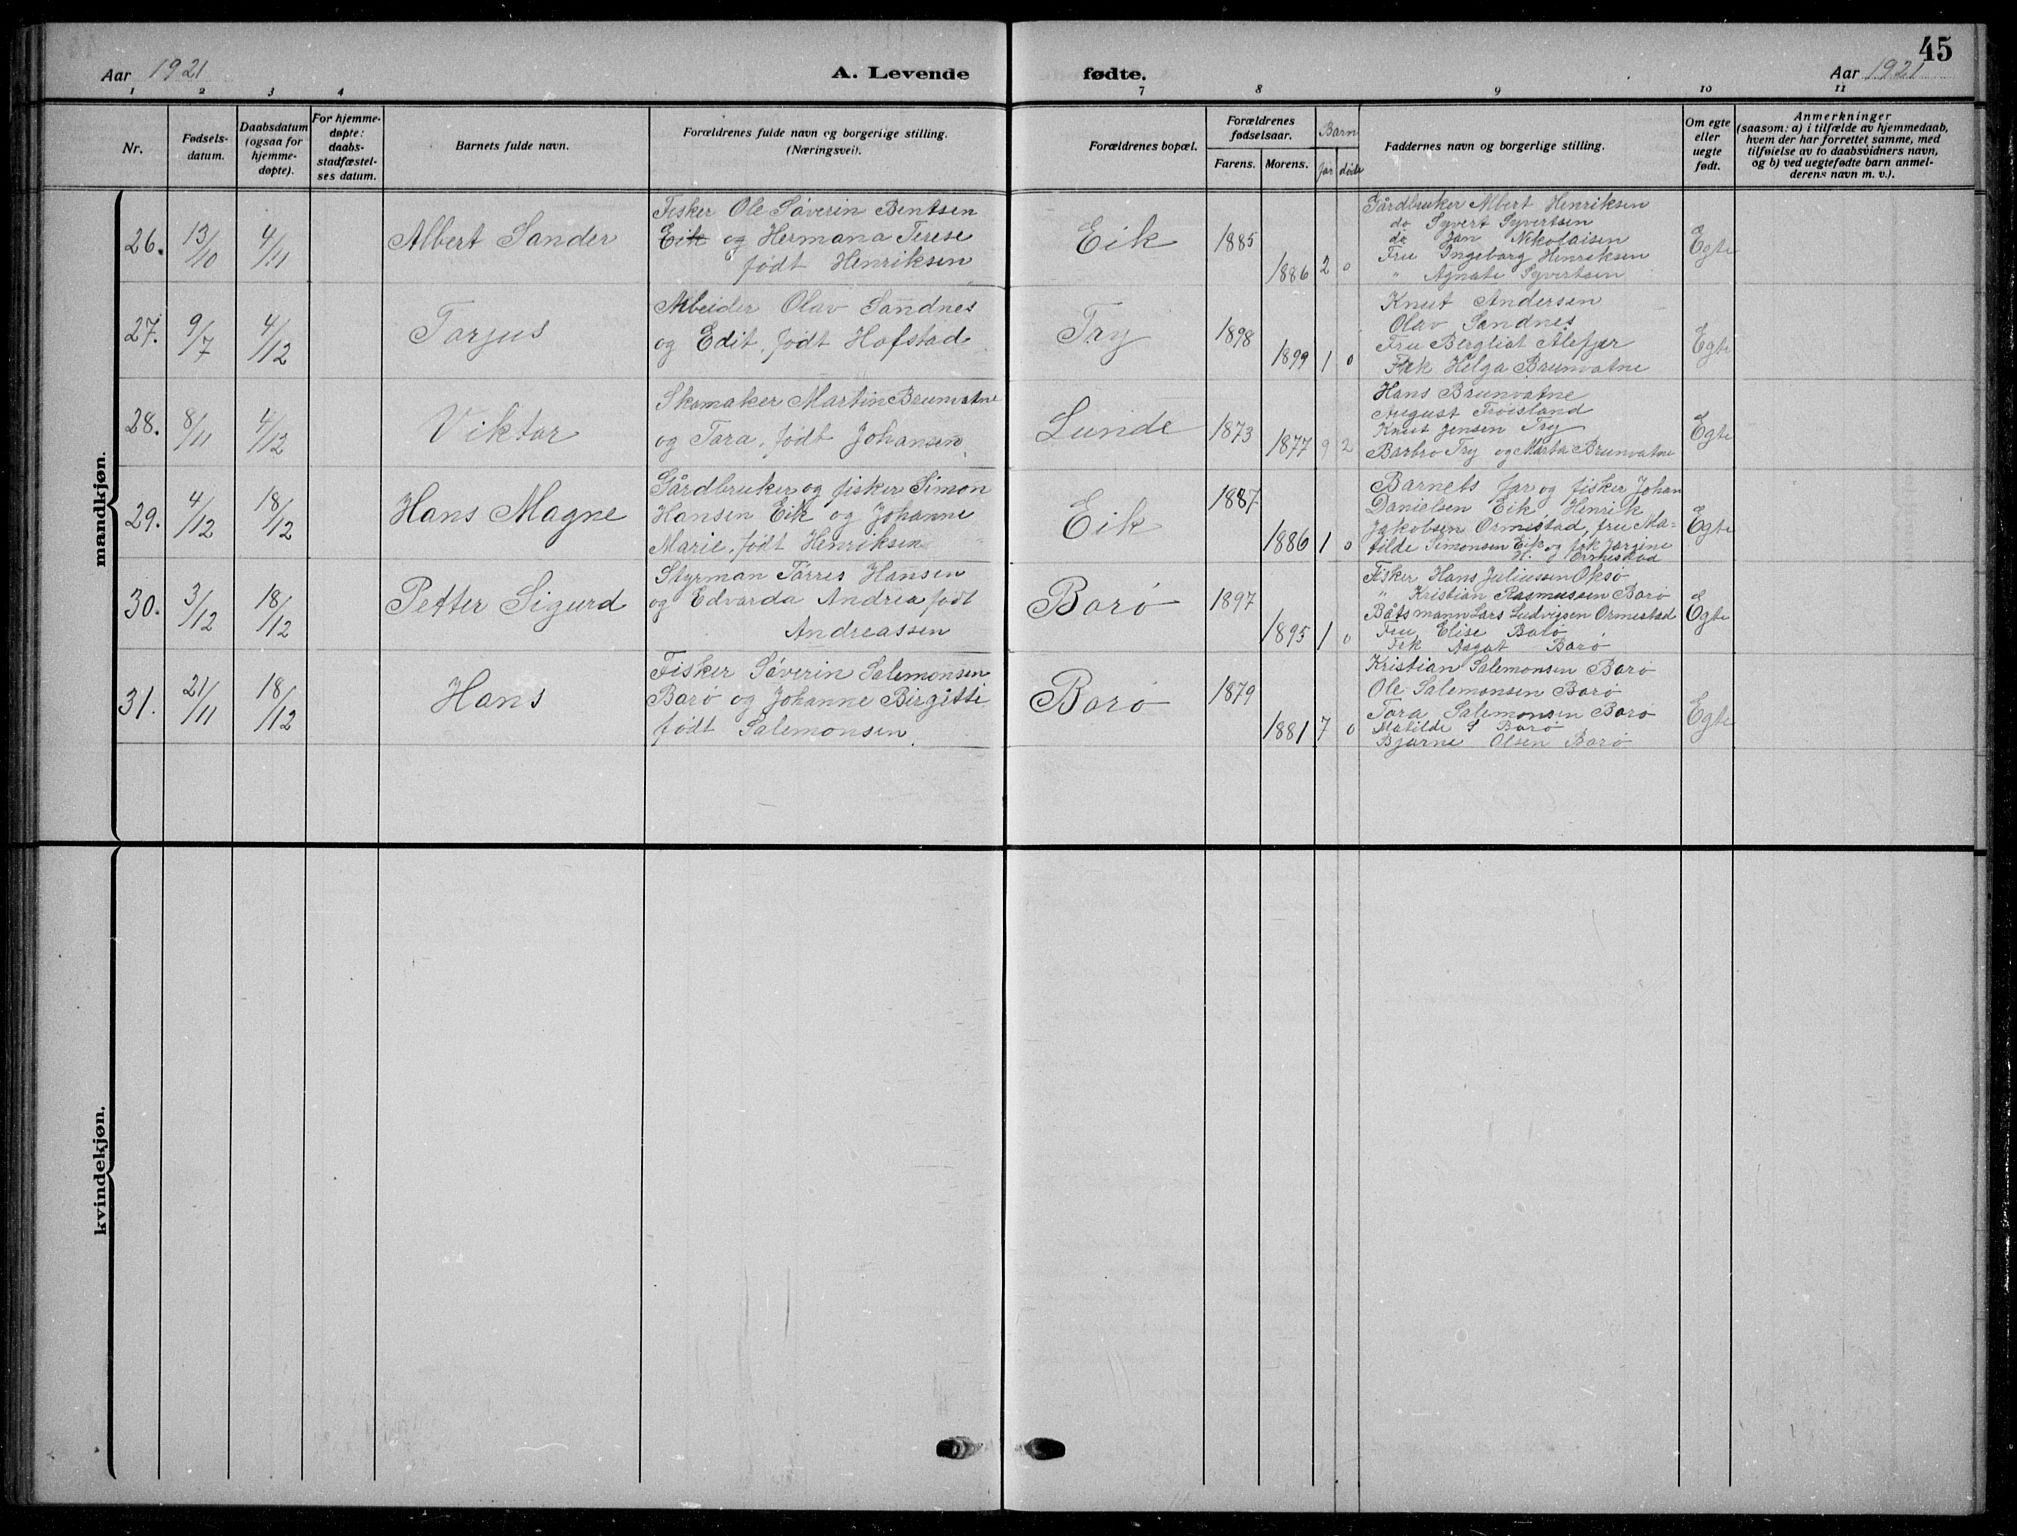 45
Aar 1921 A. Levende fødte. Aar 1921
1 2 3 4 7 8 9 10 11
Nr.
Fødsels-
datum.
Daabsdatum
(ogsaa for
hjemme-
døpte).
For hjemme-
døpte:
daabs-
stadfæstel-
ses datum.
Barnets fulde navn.
Forældrenes fulde navn og borgerlige stilling.
(Næringsvei).
Forældrenes bopæl.
Forældrenes
fødselsaar.
Farens. Morens.
Barn
før døde
Faddernes navn og borgerlige stilling.
Om egte
eller
uegte
født.
Anmerkninger
(saasom: a) i tilfælde av hjemmedaab,
hvem der har forrettet samme, med
tilføielse av to daabsvidners navn,
og b) ved uegtefødte barn anmel-
derens navn m. v.).
mandkjøn.
26. 13/10 4/11 Albert Sander
Fisker Ole Søverin Bentsen
Eik og Hermana Terese
født Henriksen
Eik 1885 1886 2 0
Gårdbruker Albert Henriksen
do Syvert Syvertsen
do Jan Nikolaisen
Fru Ingeborg Henriksen
" Agnate Syvertsen
Egte
27. 9/7 4/12 Torjus
Arbeider Olav Sandnes
og Edit, født Hofstad
Try 1898 1899 1 0
Knut Andersen
Olav Sandnes
Fru Bergliot Alefjær
Frk Helga Brunvatne
Egte
28. 8/11 4/12 Viktor
Skomaker Martin Brunvatne
og Tora, født Johansen
Lunde 1873 1877 9 2
Hans Brunvatne
August Frøisland
Knut Jensen Try
Barbro Try og Marta Brunvatne
Egte
29. 4/12 18/12 Hans Magne
Gårdbruker og fisker Simon
Hansen Eik og Johanne
Marie, født Henriksen
Eik 1887 1886 1 0
Barnets far og fisker Johan
Danielsen Eik, Henrik
Jakobsen Ormestad, fru Ma-
tilde Simonsen Eik og frk Jørgine
H. Ormestad
Egte
30. 3/12 18/12 Petter Sigurd
Styrman Tørres Hansen
og Edvarda Andrea født
Andreassen
Borø 1897 1895 1 0
Fisker Hans Juliussen Oksø
" Kristian Rasmussen Borø
Båtsmann Lars Ludvigsen Ormestad
Fru Elise Borø
Frk Aagot Borø
Egte
31. 21/11 18/12 Hans
Fisker Søverin Salemonsen
Borø og Johanne Birgitte
født Salemonsen
Borø 1879 1881 7 0
Kristian Salemonsen Borø
Ole Salemonsen Borø
Tora Salemonsen Borø
Matilde S Borø
Bjarne Olsen Borø
Egte
kvindekjøn.